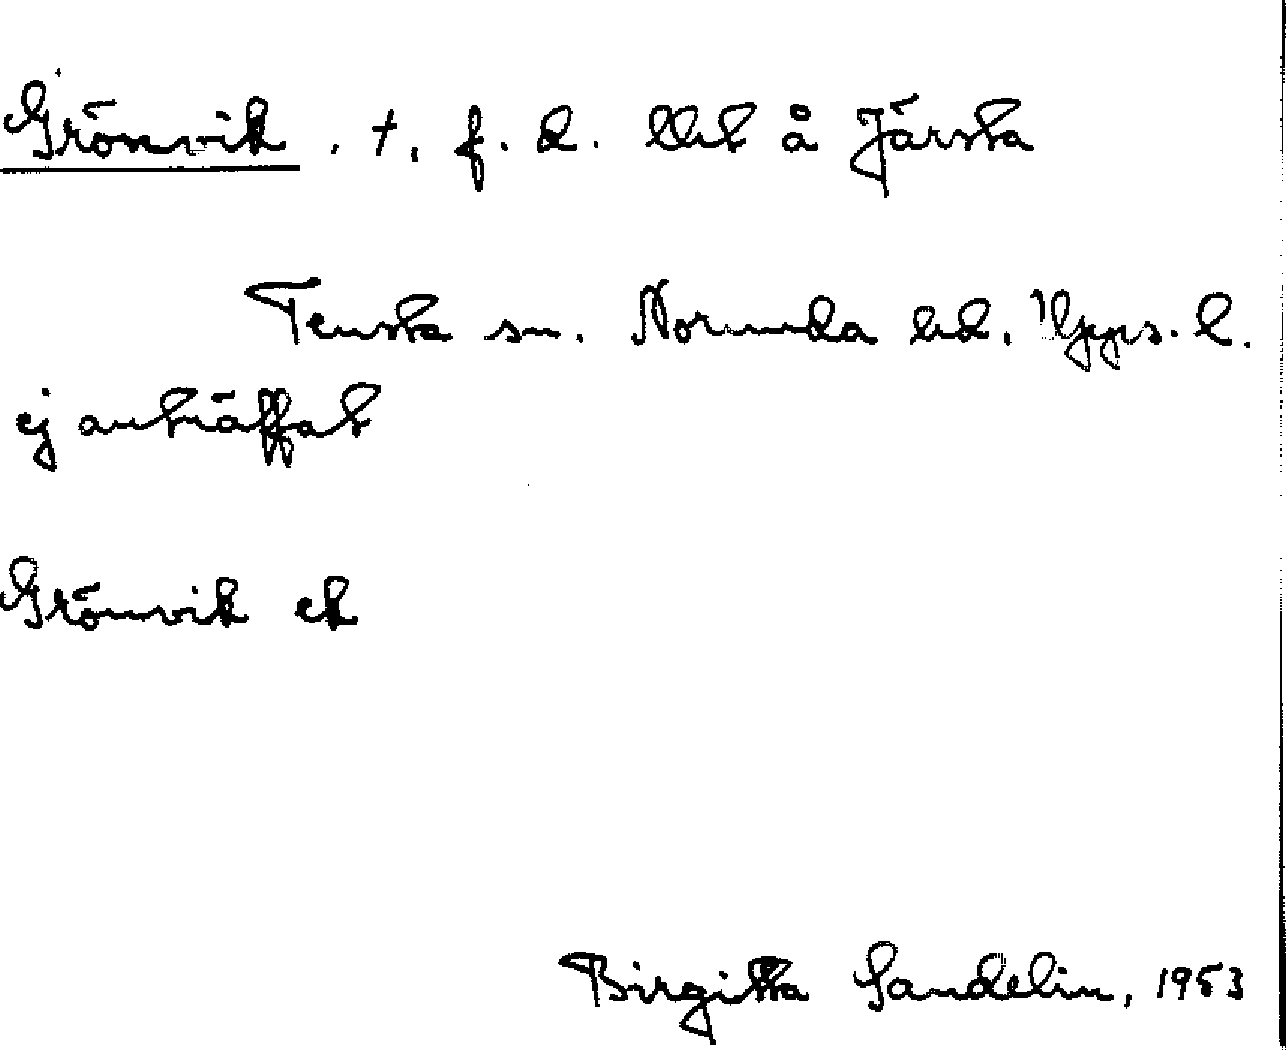 Grönvik, t, f.d. lht å Järsta
Tensta sn. Norunda hd. Upps. l.
ej anträffat
Grönvik ek
Birgitta Sandelin, 1953